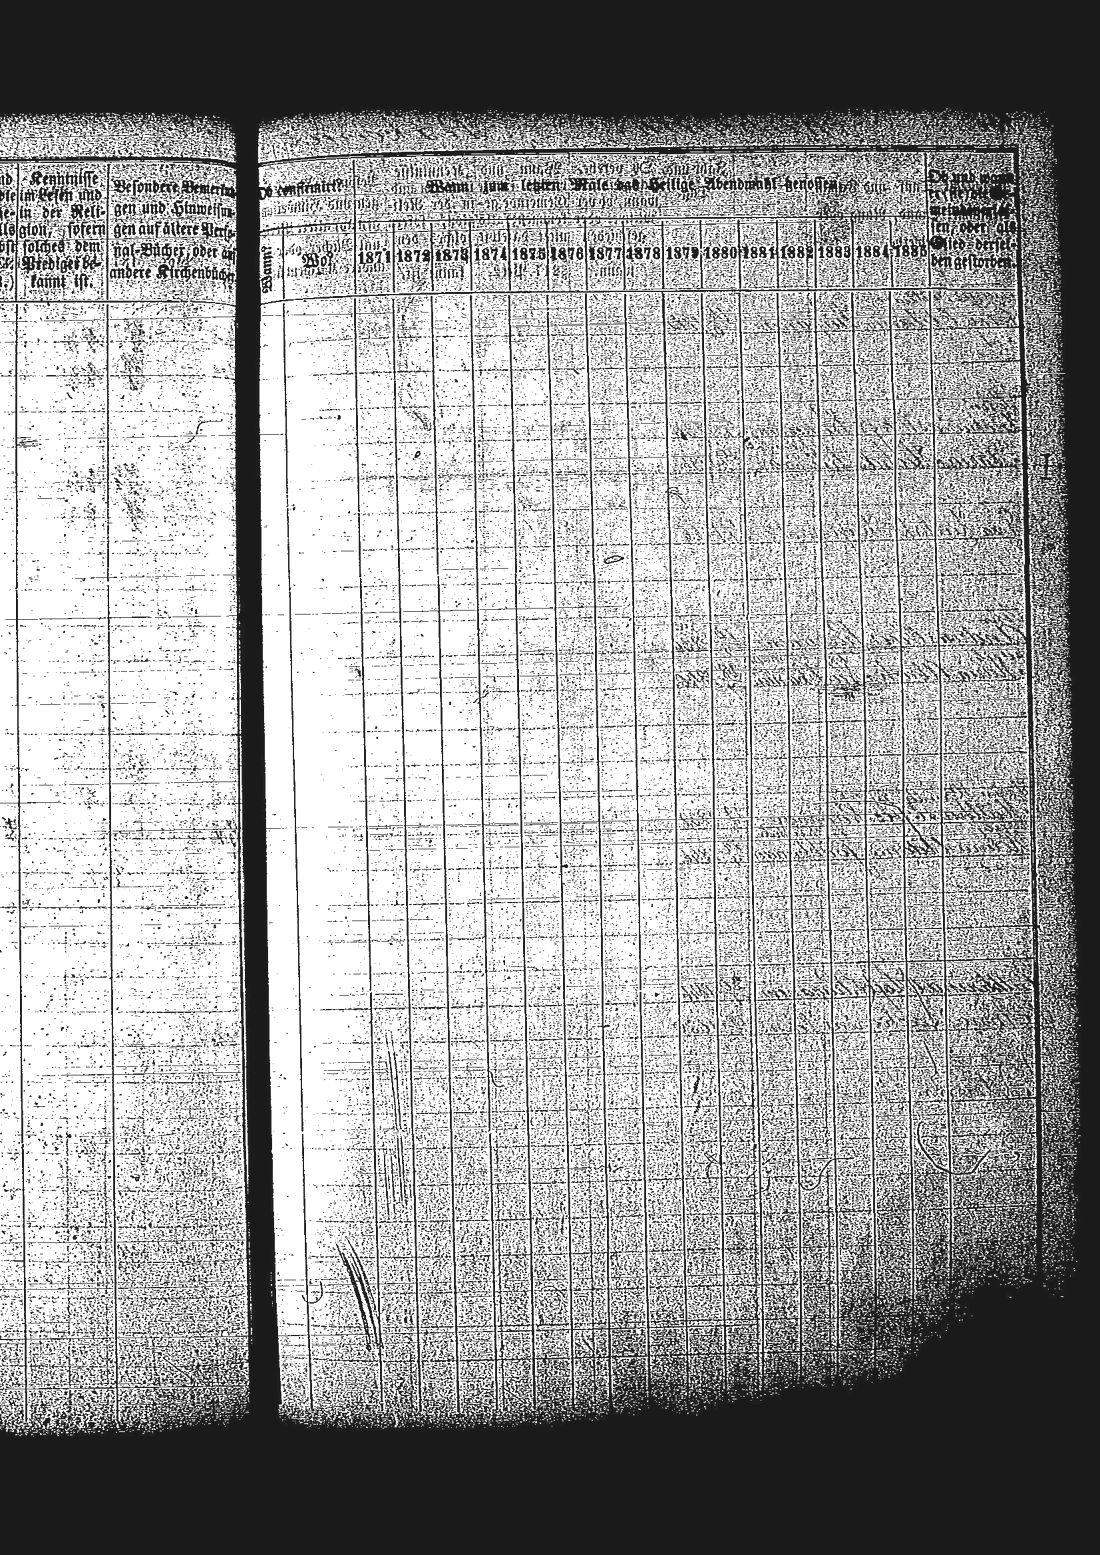 Kenntnisse
im Lesen und
in der Reli-
gion, sofern
solches dem
Prediger be-
kannt ist.
Besondere Bemerkun-
gen und Hinweisun-
gen auf ältere Perso-
nal-Bücher, oder an
andere Kirchenbücher
Ob confirmirt?
Wann?
Wo?
Wann zum letzten Male das Heilige Abendmahl genossen
1871 1872 1873 1874 1875 1876 1877 1878 1879 1880 1881 1882 1883 1884 1885
Ob und wann
sen, oder als
Glied dersel-
ben gestorben.